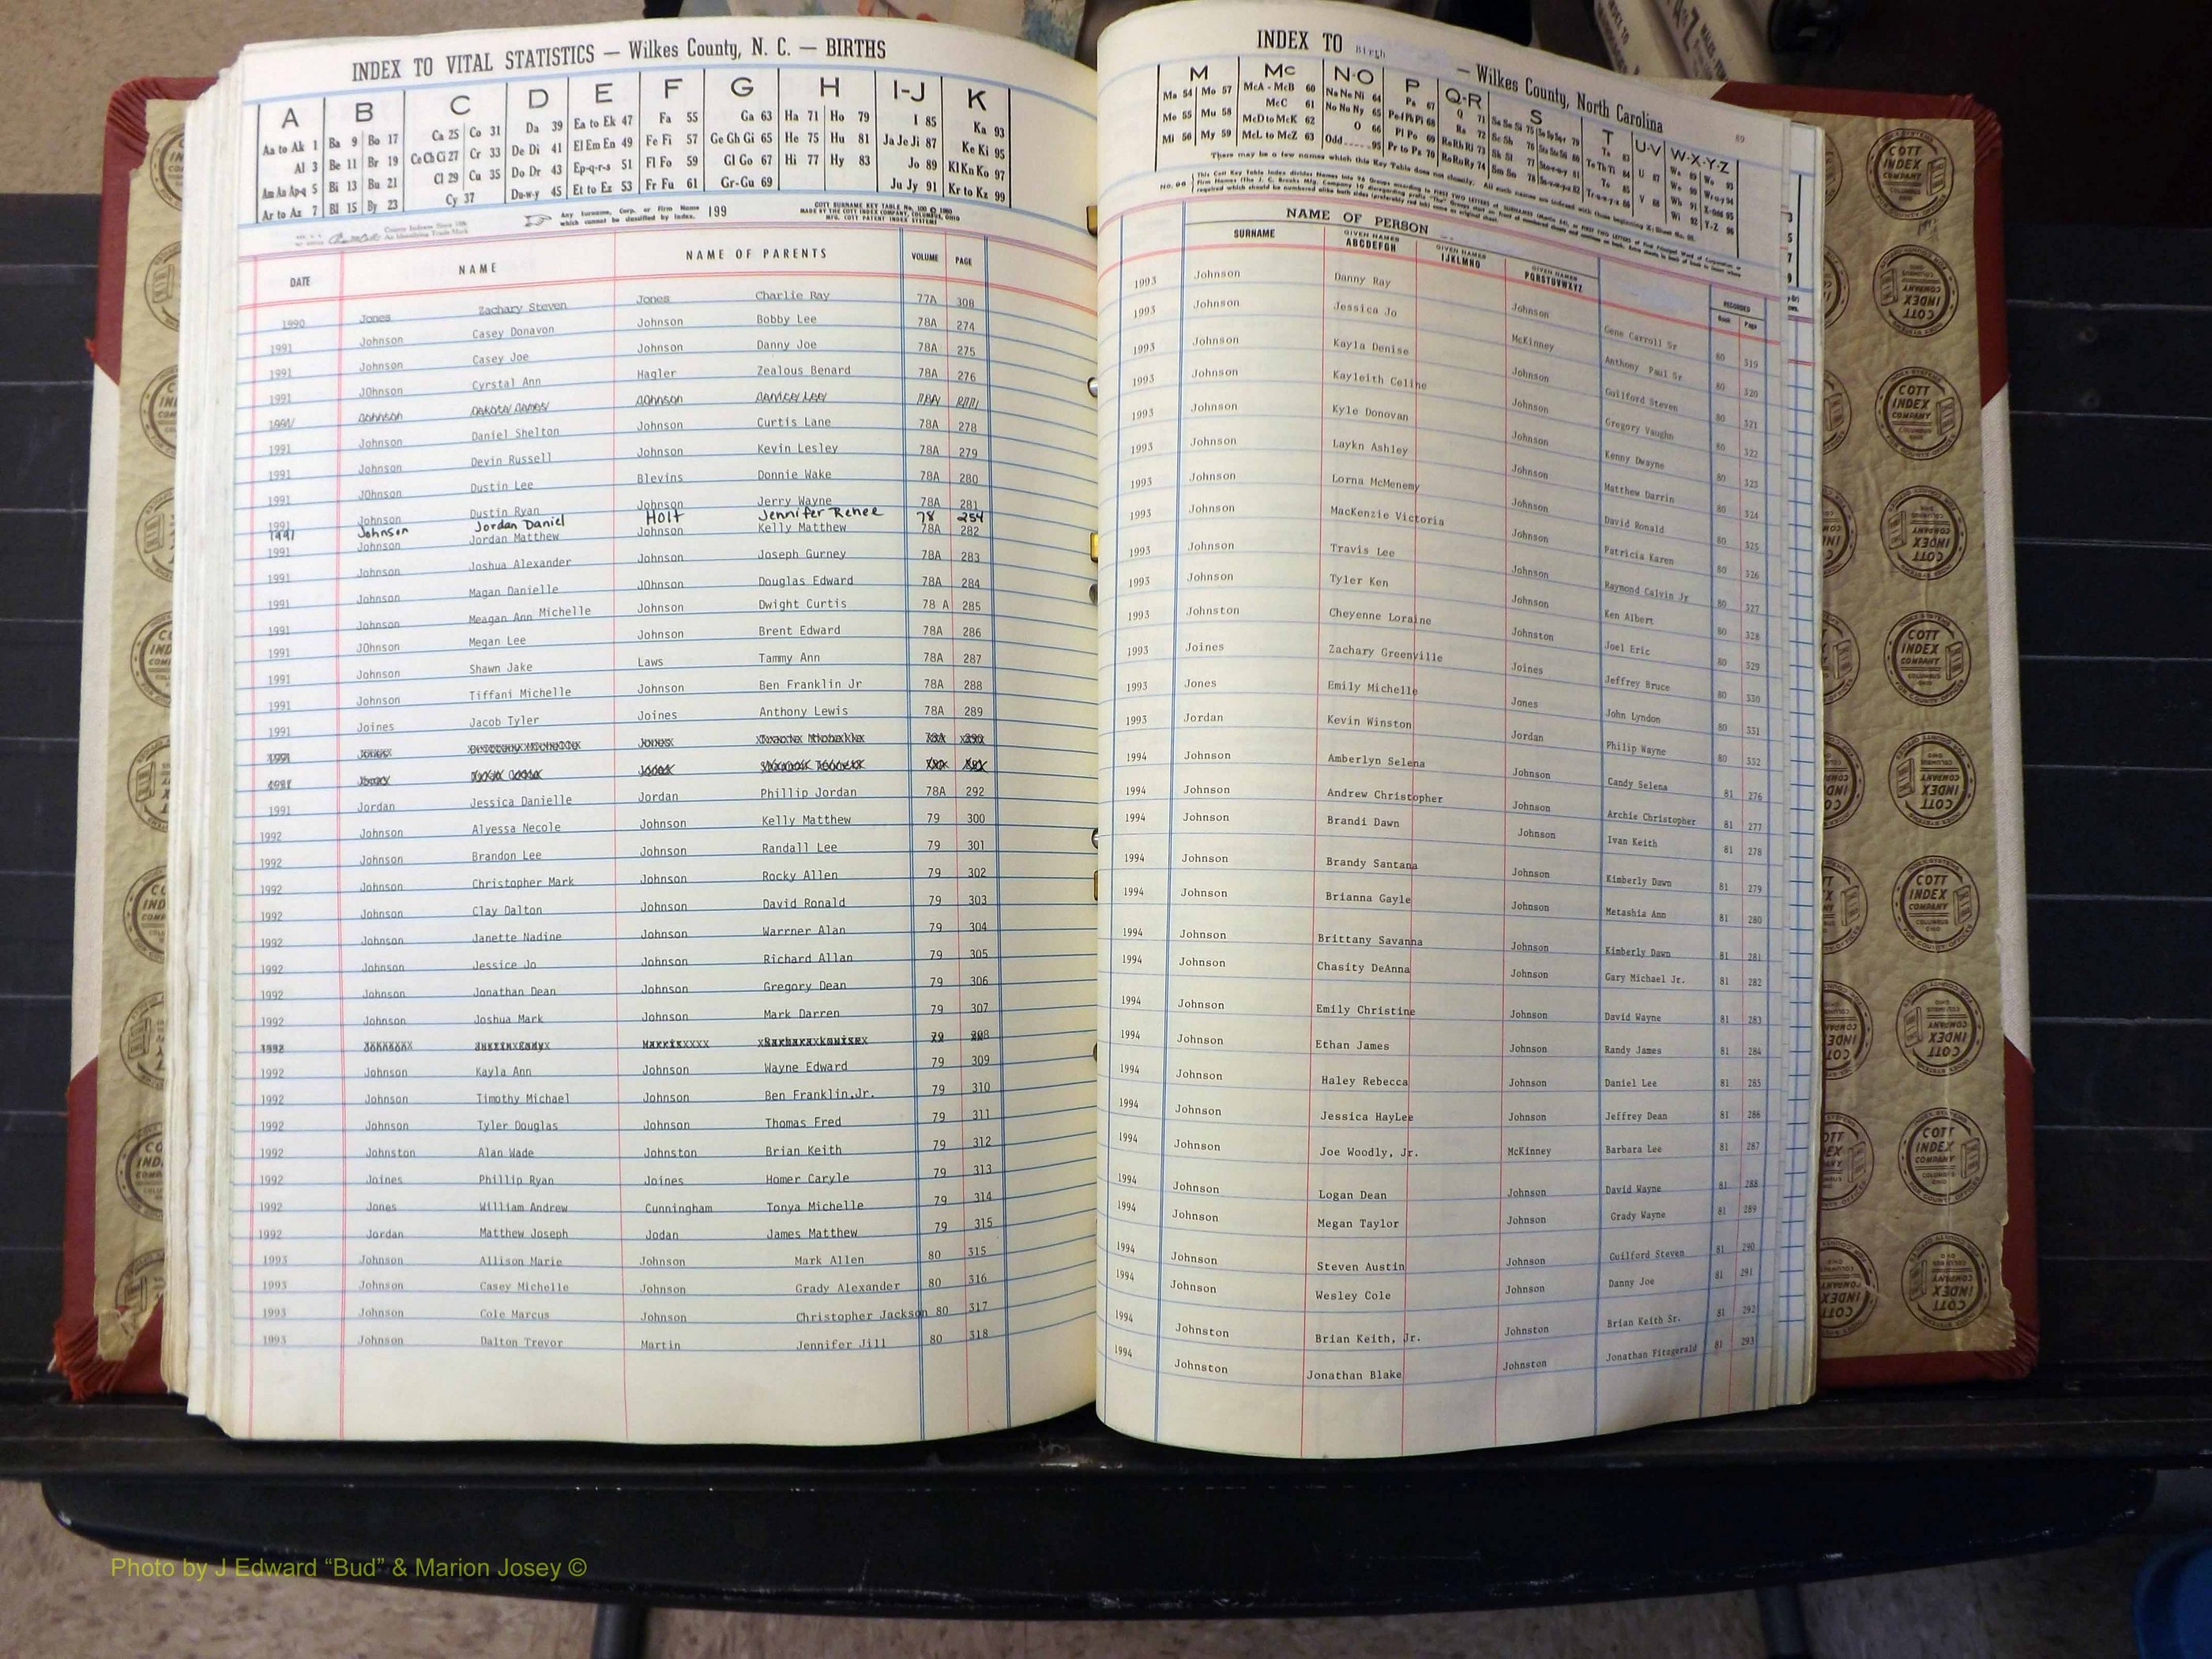 INDEX TO VITAL STATISTICS — Wilkes County, N. C. — BIRTHS
A B C D E F G H I-J K
Aa to Ak 1 Ba 9 Bo 17 Ca 25 Co 31 Da 39 Ea to Ek 47 Fa 55 Ga 63 Ha 71 Ho 79 I 85 Ka 93
Al 3 Be 11 Br 19 Ce Ch Ci 27 Cr 33 De Di 41 El Em En 49 Fe Fi 57 Ge Gh Gi 65 He 75 Hu 81 Ja Je Ji 87 Ke Ki 95
Am An Ap-q 5 Bi 13 Bu 21 Cl 29 Cu 35 Do Dr 43 Ep-q-r-s 51 Fl Fo 59 Gl Go 67 Hi 77 Hy 83 Jo 89 Kl Kn Ko 97
Ar to Az 7 Bl 15 By 23 Cy 37 Du-w-y 45 Et to Ez 53 Fr Fu 61 Gr-Gu 69 Ju Jy 91 Kr to Kz 99
Any Surname, Corp. or Firm Name which cannot be classified by Index. 199
DATE NAME NAME OF PARENTS VOLUME PAGE
1990 Jones Zachary Steven Jones Charlie Ray 77A 308
1991 Johnson Casey Donavon Johnson Bobby Lee 78A 274
1991 Johnson Casey Joe Johnson Danny Joe 78A 275
1991 JOhnson Cyrstal Ann Hagler Zealous Benard 78A 276
1991 Johnson Daniel Shelton Johnson Curtis Lane 78A 278
1991 Johnson Devin Russell Johnson Kevin Lesley 78A 279
1991 JOhnson Dustin Lee Blevins Donnie Wake 78A 280
1991 Johnson Dustin Ryan Johnson Jerry Wayne 78A 281
1991 Johnson Jordan Daniel Holt Jennifer Renee 78 254
1991 Johnson Jordan Matthew Johnson Kelly Matthew 78A 282
1991 Johnson Joshua Alexander Johnson Joseph Gurney 78A 283
1991 Johnson Magan Danielle JOhnson Douglas Edward 78A 284
1991 Johnson Meagan Ann Michelle Johnson Dwight Curtis 78 A 285
1991 JOhnson Megan Lee Johnson Brent Edward 78A 286
1991 Johnson Shawn Jake Laws Tammy Ann 78A 287
1991 Johnson Tiffani Michelle Johnson Ben Franklin Jr 78A 288
1991 Joines Jacob Tyler Joines Anthony Lewis 78A 289
1991 Jordan Jessica Danielle Jordan Phillip Jordan 78A 292
1992 Johnson Alyessa Necole Johnson Kelly Matthew 79 300
1992 Johnson Brandon Lee Johnson Randall Lee 79 301
1992 Johnson Christopher Mark Johnson Rocky Allen 79 302
1992 Johnson Clay Dalton Johnson David Ronald 79 303
1992 Johnson Janette Nadine Johnson Warrner Alan 79 304
1992 Johnson Jessice Jo Johnson Richard Allan 79 305
1992 Johnson Jonathan Dean Johnson Gregory Dean 79 306
1992 Johnson Joshua Mark Johnson Mark Darren 79 307
1992 Johnson Kayla Ann Johnson Wayne Edward 79 309
1992 Johnson Timothy Michael Johnson Ben Franklin.Jr. 79 310
1992 Johnson Tyler Douglas Johnson Thomas Fred 79 311
1992 Johnston Alan Wade Johnston Brian Keith 79 312
1992 Joines Phillip Ryan Joines Homer Caryle 79 313
1992 Jones William Andrew Cunningham Tonya Michelle 79 314
1992 Jordan Matthew Joseph Jodan James Matthew 79 315
1993 Johnson Allison Marie Johnson Mark Allen 80 315
1993 Johnson Casey Michelle Johnson Grady Alexander 80 316
1993 Johnson Cole Marcus Johnson Christopher Jackson 80 317
1993 Johnson Dalton Trevor Martin Jennifer Jill 80 318
INDEX TO Birth — Wilkes County, North Carolina 89
M Mc N-O P Q-R S T U-V W-X-Y-Z
NAME OF PERSON
SURNAME GIVEN NAMES ABCDEFGH GIVEN NAMES IJKLMNO GIVEN NAMES PQRSTUVWXYZ RECORDED Book Page
1993 Johnson Danny Ray Johnson Gene Carroll Sr 80 319
1993 Johnson Jessica Jo McKinney Anthony Paul Sr 80 320
1993 Johnson Kayla Denise Johnson Guilford Steven 80 321
1993 Johnson Kayleith Celine Johnson Gregory Vaughn 80 322
1993 Johnson Kyle Donovan Johnson Kenny Dwayne 80 323
1993 Johnson Laykn Ashley Johnson Matthew Darrin 80 324
1993 Johnson Lorna McMenemy Johnson David Ronald 80 325
1993 Johnson MacKenzie Victoria Johnson Patricia Karen 80 326
1993 Johnson Travis Lee Johnson Raymond Calvin Jr 80 327
1993 Johnson Tyler Ken Johnson Ken Albert 80 328
1993 Johnston Cheyenne Loraine Johnston Joel Eric 80 329
1993 Joines Zachary Greenville Joines Jeffrey Bruce 80 330
1993 Jones Emily Michelle Jones John Lyndon 80 331
1993 Jordan Kevin Winston Jordan Philip Wayne 80 332
1994 Johnson Amberlyn Selena Johnson Candy Selena 81 276
1994 Johnson Andrew Christopher Johnson Archie Christopher 81 277
1994 Johnson Brandi Dawn Johnson Ivan Keith 81 278
1994 Johnson Brandy Santana Johnson Kimberly Dawn 81 279
1994 Johnson Brianna Gayle Johnson Metashia Ann 81 280
1994 Johnson Brittany Savanna Johnson Kimberly Dawn 81 281
1994 Johnson Chasity DeAnna Johnson Gary Michael Jr. 81 282
1994 Johnson Emily Christine Johnson David Wayne 81 283
1994 Johnson Ethan James Johnson Randy James 81 284
1994 Johnson Haley Rebecca Johnson Daniel Lee 81 285
1994 Johnson Jessica HayLee Johnson Jeffrey Dean 81 286
1994 Johnson Joe Woodly, Jr. McKinney Barbara Lee 81 287
1994 Johnson Logan Dean Johnson David Wayne 81 288
1994 Johnson Megan Taylor Johnson Grady Wayne 81 289
1994 Johnson Steven Austin Johnson Guilford Steven 81 290
1994 Johnson Wesley Cole Johnson Danny Joe 81 291
1994 Johnston Brian Keith, Jr. Johnston Brian Keith Sr. 81 292
1994 Johnston Jonathan Blake Johnston Jonathan Fitzgerald 81 293
COTT INDEX COMPANY
Photo by J Edward “Bud” & Marion Josey ©